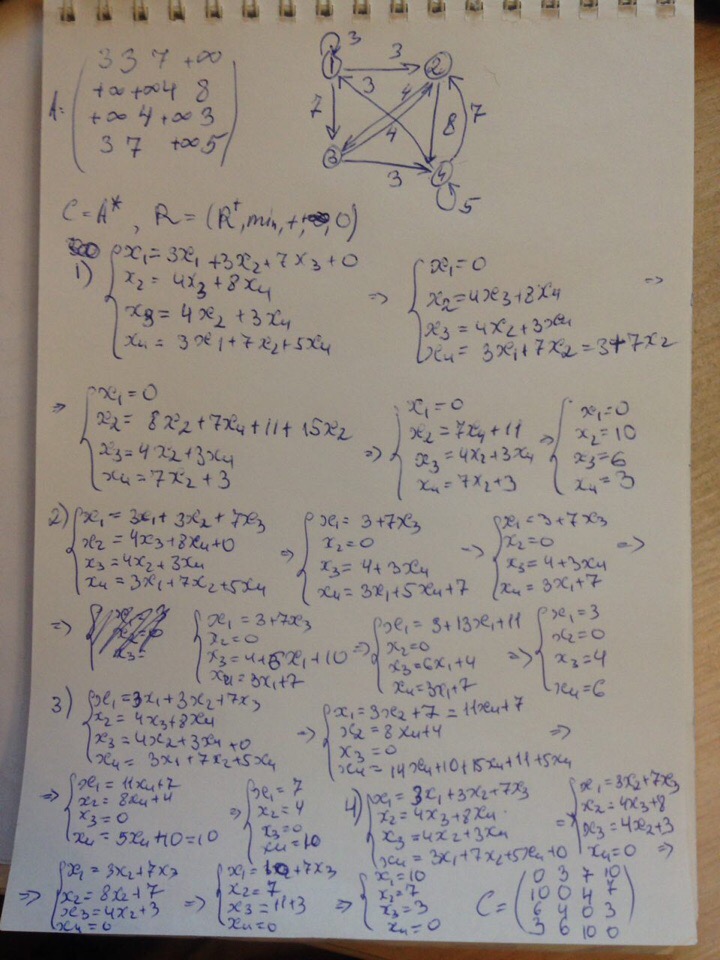 A = ( 3 3 7 +∞
+∞ +∞ 4 8
+∞ 4 +∞ 3
3 7 +∞ 5 )
1 2 3 4
3 3 7 3 4 4 8 7 3 5
C = A* , R = (R⁺, min, +, +∞, 0)
1) { x₁ = 3x₁ + 3x₂ + 7x₃ + 0
x₂ = 4x₃ + 8x₄
x₃ = 4x₂ + 3x₄
x₄ = 3x₁ + 7x₂ + 5x₄
⇒ { x₁ = 0
x₂ = 4x₃ + 8x₄
x₃ = 4x₂ + 3x₄
x₄ = 3x₁ + 7x₂ = 3 + 7x₂
⇒
⇒ { x₁ = 0
x₂ = 8x₂ + 7x₄ + 11 + 15x₂
x₃ = 4x₂ + 3x₄
x₄ = 7x₂ + 3
⇒ { x₁ = 0
x₂ = 7x₄ + 11
x₃ = 4x₂ + 3x₄
x₄ = 7x₂ + 3
⇒ { x₁ = 0
x₂ = 10
x₃ = 6
x₄ = 3
2) { x₁ = 3x₁ + 3x₂ + 7x₃
x₂ = 4x₃ + 8x₄ + 0
x₃ = 4x₂ + 3x₄
x₄ = 3x₁ + 7x₂ + 5x₄
⇒ { x₁ = 3 + 7x₃
x₂ = 0
x₃ = 4 + 3x₄
x₄ = 3x₁ + 5x₄ + 7
⇒ { x₁ = 3 + 7x₃
x₂ = 0
x₃ = 4 + 3x₄
x₄ = 3x₁ + 7
⇒
⇒ { x₁ = 3 + 7x₃
x₂ = 0
x₃ = 4 + 6x₁ + 10
x₄ = 3x₁ + 7
⇒ { x₁ = 3 + 13x₁ + 11
x₂ = 0
x₃ = 6x₁ + 4
x₄ = 3x₁ + 7
⇒ { x₁ = 3
x₂ = 0
x₃ = 4
x₄ = 6
3) { x₁ = 3x₁ + 3x₂ + 7x₃
x₂ = 4x₃ + 8x₄
x₃ = 4x₂ + 3x₄ + 0
x₄ = 3x₁ + 7x₂ + 5x₄
⇒ { x₁ = 3x₂ + 7 = 11x₄ + 7
x₂ = 8x₄ + 4
x₃ = 0
x₄ = 14x₄ + 10 + 15x₄ + 11 + 5x₄
⇒
⇒ { x₁ = 11x₄ + 7
x₂ = 8x₄ + 4
x₃ = 0
x₄ = 5x₄ + 10 = 10
⇒ { x₁ = 7
x₂ = 4
x₃ = 0
x₄ = 10
4) { x₁ = 3x₁ + 3x₂ + 7x₃
x₂ = 4x₃ + 8x₄
x₃ = 4x₂ + 3x₄
x₄ = 3x₁ + 7x₂ + 5x₄ + 0
⇒ { x₁ = 3x₂ + 7x₃
x₂ = 4x₃ + 8
x₃ = 4x₂ + 3
x₄ = 0
⇒
⇒ { x₁ = 3x₂ + 7x₃
x₂ = 8x₂ + 7
x₃ = 4x₂ + 3
x₄ = 0
⇒ { x₁ = + 7x₃
x₂ = 7
x₃ = 11 + 3
x₄ = 0
⇒ { x₁ = 10
x₂ = 7
x₃ = 3
x₄ = 0
C = ( 0 3 7 10
10 0 4 7
6 4 0 3
3 6 10 0 )